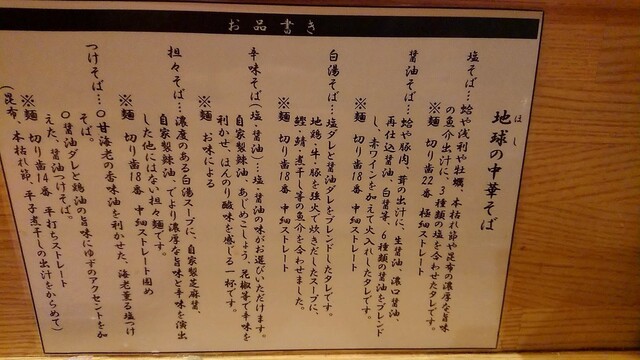 お品書き
ほし
地球の中華そば
塩そば…蛤や浅利や牡蠣、本枯れ節や昆布の濃厚な旨味
の魚介出汁に、3種類の塩を合わせたタレです。
※麺 切り歯22番 極細ストレート
醤油そば…蛤や豚肉、茸の出汁に、生醤油、濃口醤油、
再仕込醤油、白醤等、6種類の醤油をブレンド
し、赤ワインを加えて火入れしたタレです。
※麺 切り歯18番 中細ストレート
白湯そば…塩ダレと醤油ダレをブレンドしたタレです。
地鶏・牛・豚を強火で炊きだしたスープに、
鰹・鯖・煮干し等の魚介を合わせました。
※麺 切り歯18番 中細ストレート
辛味そば(塩・醤油)…塩・醤油の味がお選びいただけます。
自家製辣油、あじめこしょう、花椒等で辛味を
利かせ、ほんのり酸味を感じる一杯です。
※麺 お味による
担々そば…濃度のある白湯スープに、自家製芝麻醤、
自家製辣油、でより濃厚な旨味と辛味を演出
した他にはない担々麺です。
※麺 切り歯18番 中細ストレート固め
つけそば…○甘海老の香味油を利かせた、海老薫る塩つけ
そば。
○醤油ダレと鶏油の旨味にゆずのアクセントを加
えた、醤油つけそば。
※麺 切り歯14番 平打ちストレート
(昆布、本枯れ節、平子煮干しの出汁をからめて)